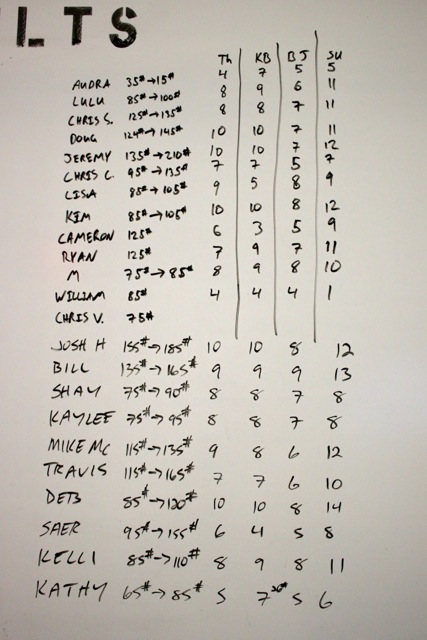 LTS
Th KB BJ SU
AUDRA 35#→15# 4 7 5 5
LULU 85#→100# 8 9 6 11
CHRIS S. 125#→135# 8 8 7 11
DOUG 124#→145# 10 10 7 11
JEREMY 135#→210# 10 10 7 12
CHRIS C. 95#→135# 7 7 5 7
LISA 85#→105# 9 5 8 9
KIM 85#→105# 10 10 8 12
CAMERON 125# 6 3 5 9
RYAN 125# 7 9 7 11
M 75#→85# 8 9 8 10
WILLIAM 85# 4 4 4 1
CHRIS V. 75#
JOSH H 155#→185# 10 10 8 12
BILL 135#→165# 9 9 9 13
SHAY 75#→90# 8 8 7 8
KAYLEE 75#→95# 8 8 7 8
MIKE MC 115#→135# 9 8 6 12
TRAVIS 115#→165# 7 7 6 10
DEB 85#→120# 10 10 8 14
SAER 95#→155# 6 4 5 8
KELLI 85#→110# 8 9 8 11
KATHY 65#→85# 5 7 5 6